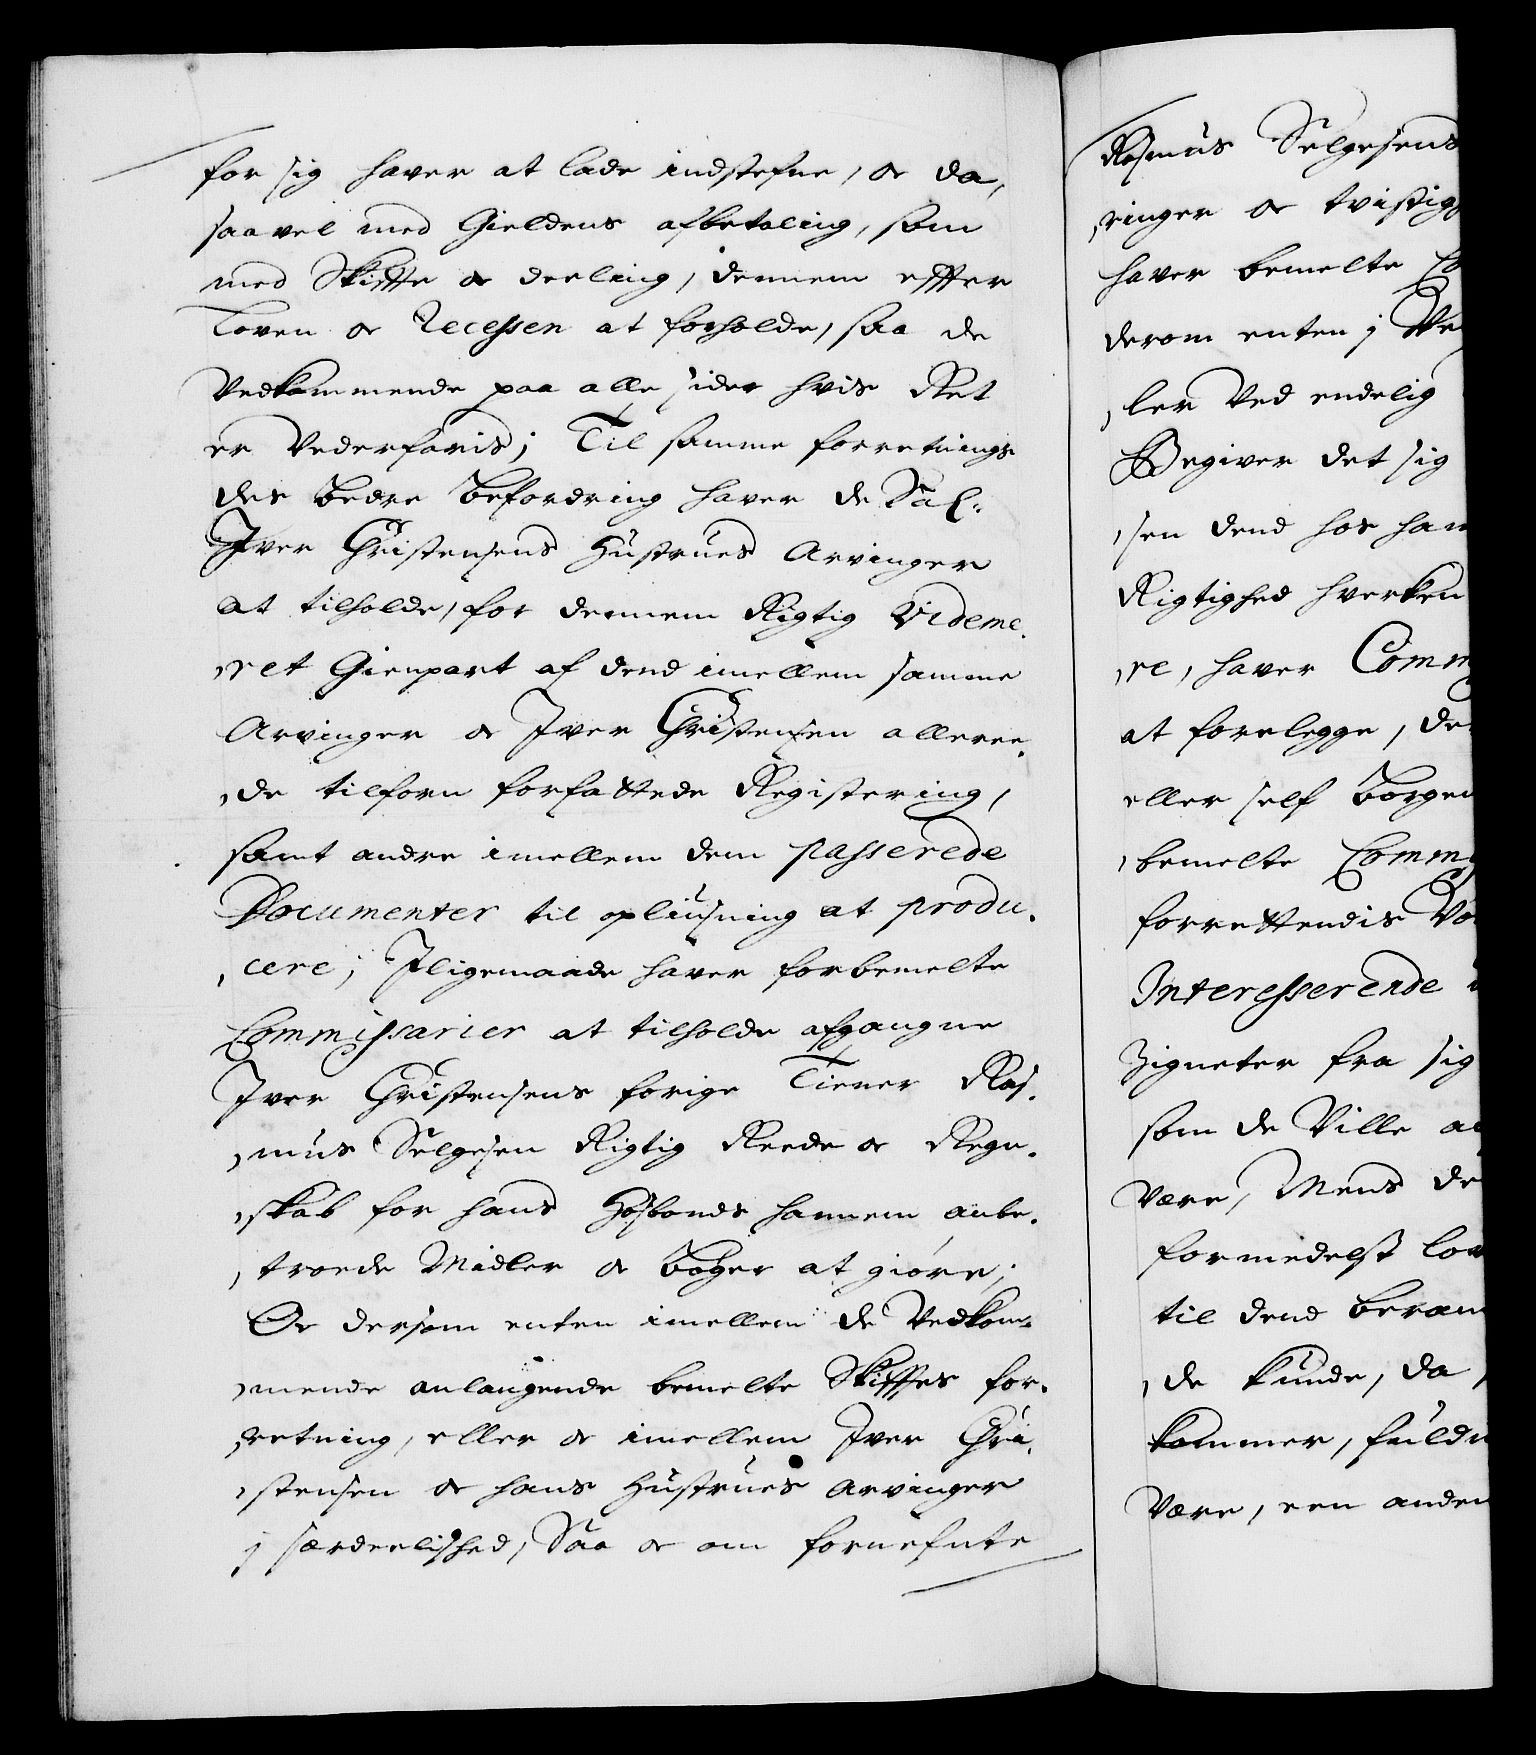 for sig haver at lade indstefne, oc da,
saavel med Gieldens afbetaling, som
med Skiffte oc deeling, dennem effter
Loven oc Recessen at forholde, saa de
Vedkommende paa alle sider hvis Ret
er Vederfaris; Til samme forretnings
des bedre befordring haver de Sal.
Iver Christensens Hustrues Arvinger
at tilholde, for dennem Rigtig Videme,
,ret Gienpart af dend imellem samme
Arvinger oc Iver Christensen alleree,
,de tilforn forfattede Registering,
samt andre imellem dem passerede
Documenter til opliusning at produ,
,cere; Iligemaade haver forbemelte
Commissarier at tilholde afgangne
Iver Christensens forige Tiener Ras,
,mus Selgesen Rigtig Reede oc Regn,
,skab for hans Hosbonds hannem anbe,
,troede Midler oc Bøger at giøre;
Oc dersom enten imellem de Vedkom,
,mende anlangende bemelte Skifftes for,
,retning, eller oc imellem Iver Chri,
,stensen oc hans Hustrues Arvinger
j særdeelished, Saa oc om fornefnte
Rasmus Selgesens
,ringer oc tvistig
haver bemelte Co
derom enten j Ve
,ler Ved endelig
Begiver det sig
,sen dend hos han
Rigtighed hverken
,re, haver Comm
at forelegge, de
eller self Borgen
,bemelte Comm
forrettendis Vo
Interesserende
Zigneter fra sig
som de Ville
Være, Mens de
formedelst lov
til dend beram
,de kunde, da
kommer, fuld
Være, een anden